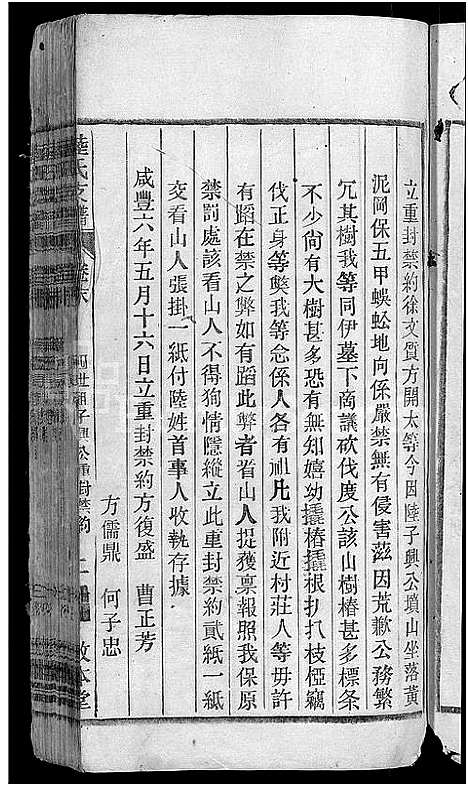 立重封禁約徐文質方開太等今因陸子興公墳山坐落黃
泥岡保五甲蜈蚣地向係嚴禁無有侵害茲因荒歉公務繁
冗其樹我等同伊墓下商議砍伐度公該山樹樁甚多標条
不少尙有大樹甚多恐有無知嬉幼撬樁撬根扒扒枝極竊
伐正身等獘我等念係人各有祖凡我附近村莊人等毋許
有蹈在禁之弊如有蹈此弊者看山人捉獲稟報照我保原
禁罰處該看山人不得狥情隱縱立此重封禁約貳紙一紙
交看山人張掛一紙付陸姓首事人收執存據
咸豐六年五月十六日立重封禁約方復盛 曹正芳
方儒鼎 何子忠
陸氏支譜 卷末 四世祖子興公重封禁約 二 敦本堂